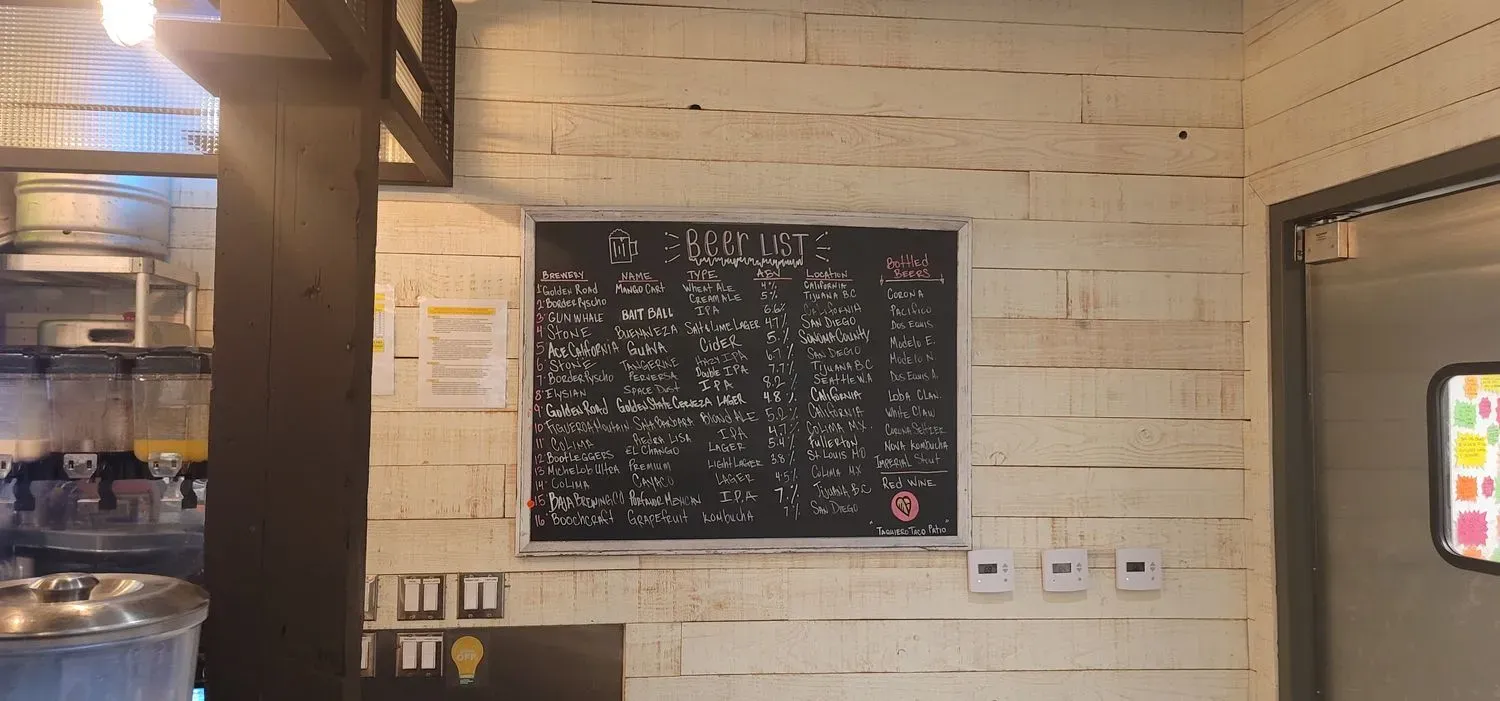 BEER LIST
BREWERY NAME TYPE ABV LOCATION
1 Golden Road Mango Cart Wheat Ale 4% California
2 Border Pyscho Cream Ale 5% Tijuana B.C
3 GUN WHALE BAIT BALL IPA 6.6% CALIFORNIA
4 STONE BUENAVEZA Salt & Lime LAGER 4.7% SAN DIEGO
5 ACE CALIFORNIA GUAVA CIDER 5% SONOMA COUNTY
6 STONE TANGERINE HAZY IPA 6.7% SAN DIEGO
7 Border Pyscho PERVERSA Double IPA 7.7% TIJUANA B.C
8 ELYSIAN SPACE DUST IPA 8.2% SEATTLE WA
9 GOLDEN ROAD GOLDEN STATE CERVEZA LAGER 4.8% CALIFORNIA
10 FIGUEROA MOUNTAIN SANTA BARBARA BLOND ALE 5.2% CALIFORNIA
11 COLIMA PIEDRA LISA IPA 4.7% COLIMA MX.
12 BOOTLEGGERS EL CHANGO LAGER 5.4% Fullerton
13 Michelob Ultra PREMIUM LIGHT LAGER 3.8% St. Louis MO
14 COLIMA CAYACO LAGER 4.5% COLIMA MX
15 BAJA BREWING CO MEXICAN IPA 7% TIJUANA, B.C
16 BOOCHCRAFT GRAPEFRUIT KOMBUCHA 7% SAN DIEGO
Bottled
BEERS
CORONA
PACIFICO
DOS EQUIS
MODELO E.
MODELO N
DOS EQUIS A.
LOBA CLAN.
WHITE CLAW
CORONA SELTZER
NOVA KOMBUCHA
IMPERIAL STOUT
RED WINE
"TAQUIERO TACO PATIO"
OFF